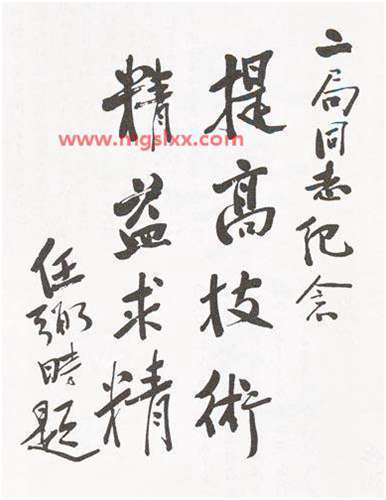 二局同志纪念
提高技術
精益求精
任弼時題
www.mgslxx.com